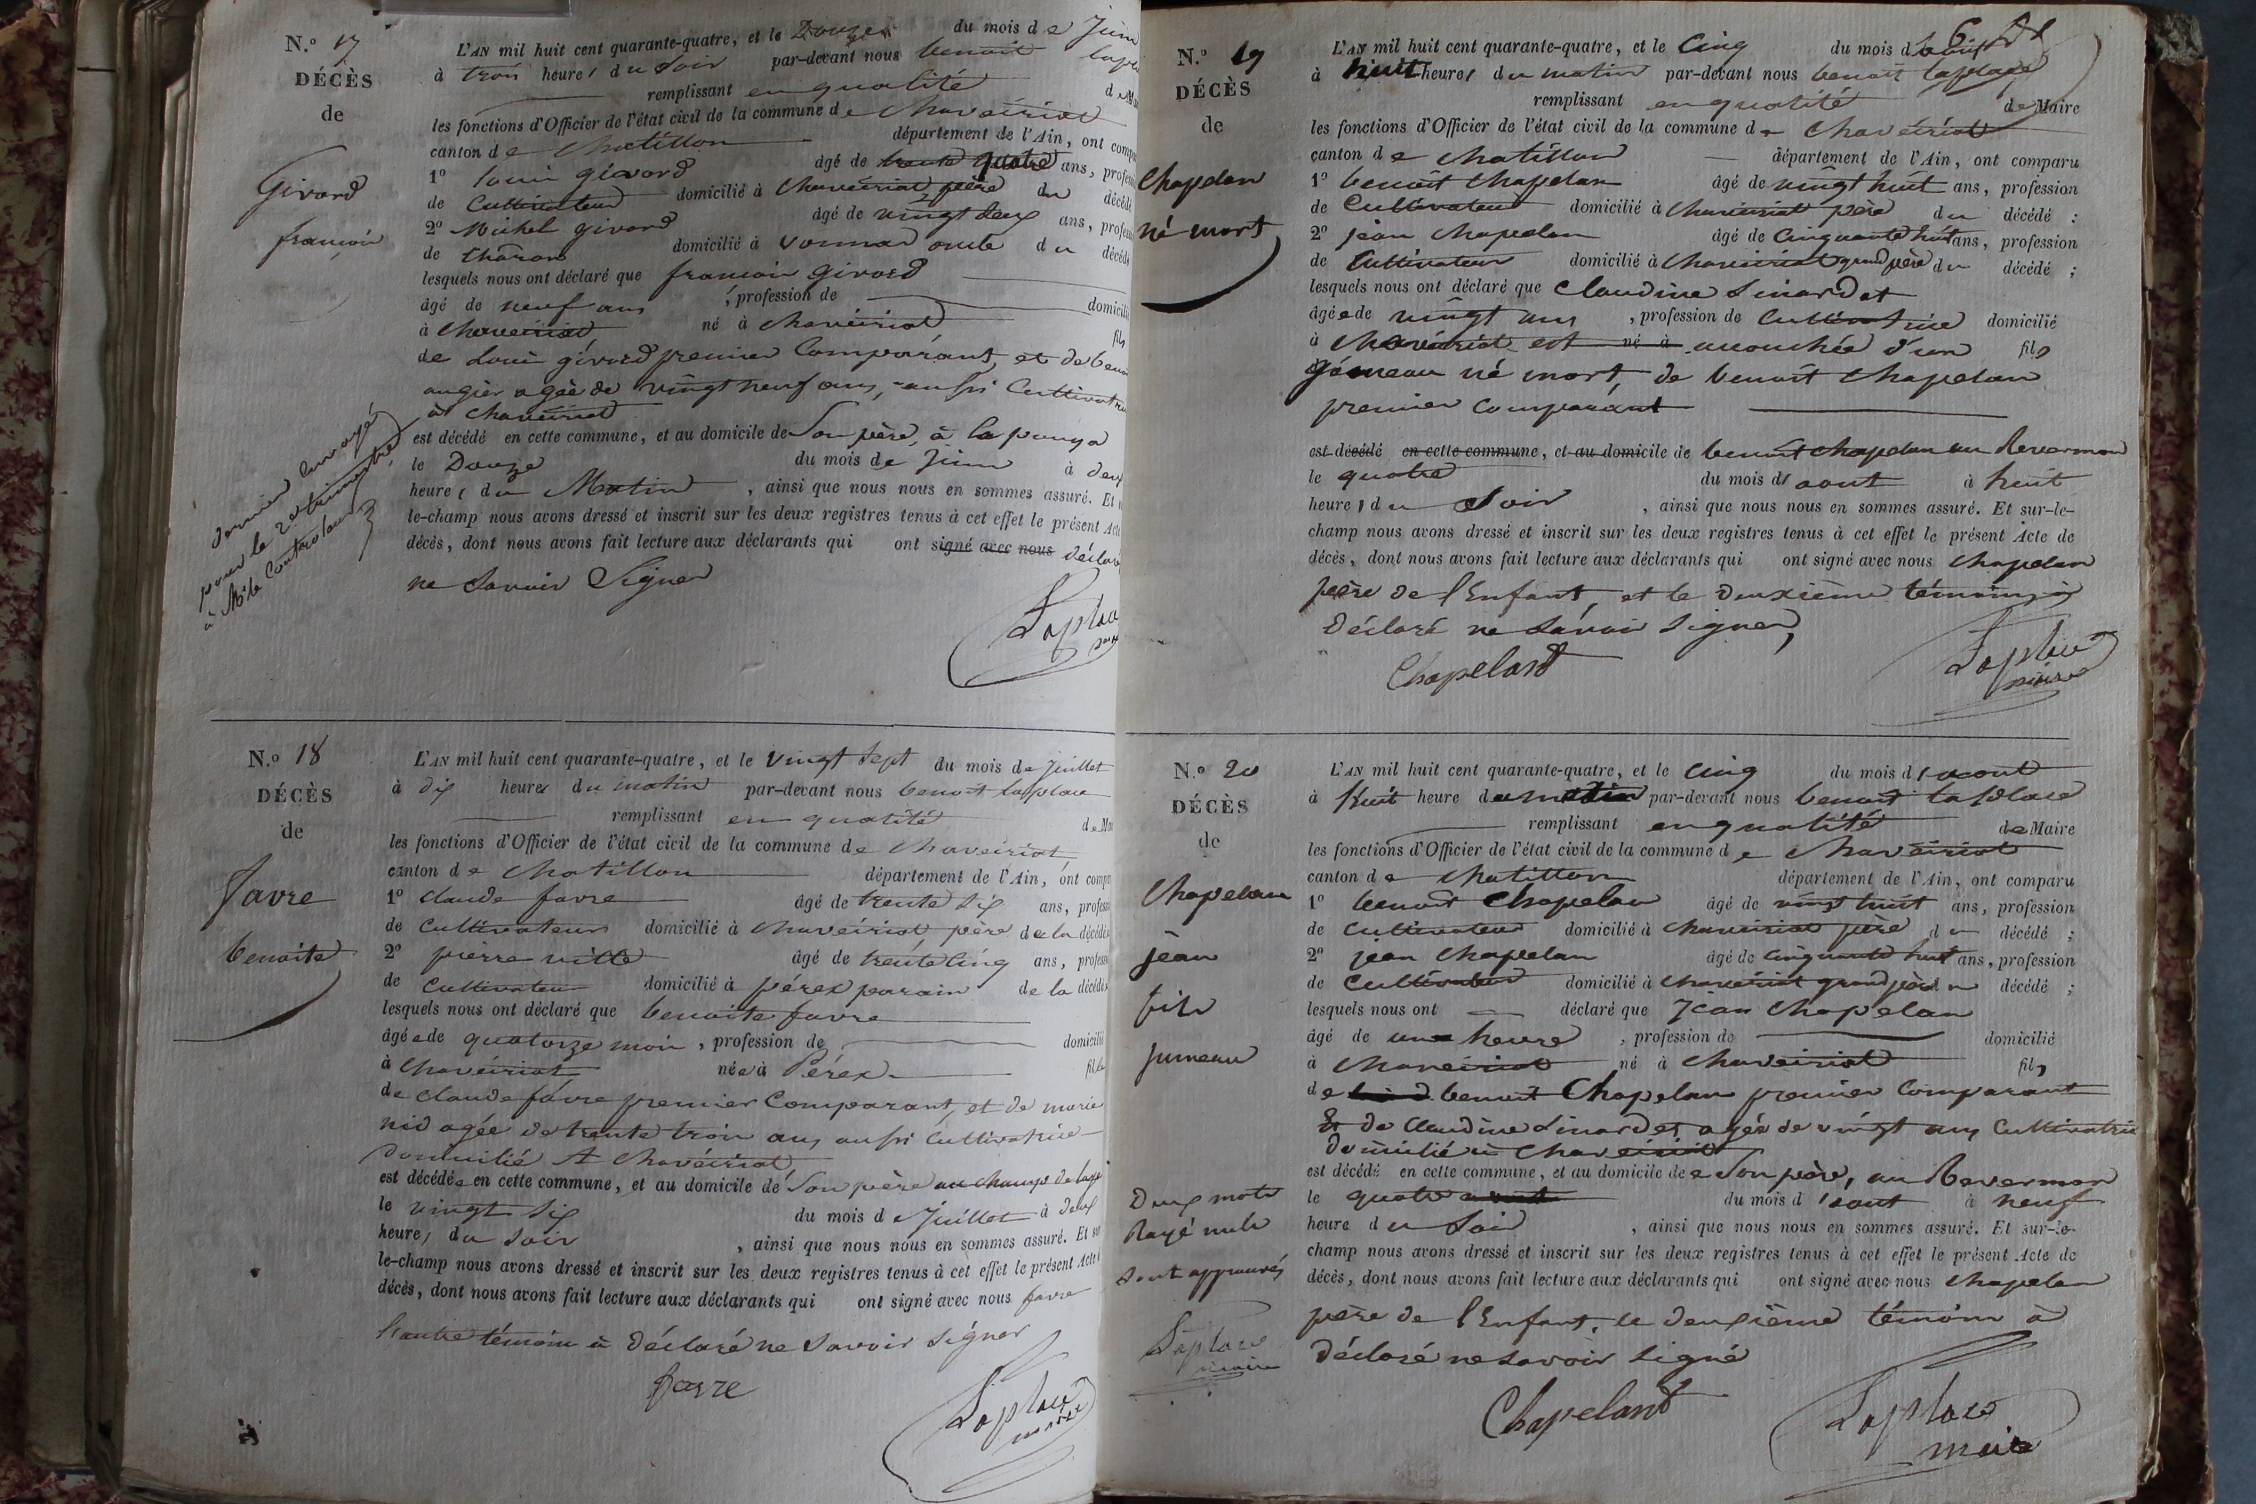 N.o 17
DÉCÈS
de
Girard
françois
L'AN mil huit cent quarante-quatre, et le Douze du mois de Juin
à trois heures du Soir par-devant nous benoit lapla
remplissant en qualité de
les fonctions d'Officier de l'état civil de la commune de Chaveiriat
canton de Chatillon département de l'Ain, ont compa
1o Louis girard âgé de trente quatre ans, profess
de Cultivateur domicilié à Chaveiriat père du décédé
2o Michel girard âgé de vingt deux ans, profess
de Charon domicilié à Vonnas oncle du décédé
lesquels nous ont déclaré que françois Girard
âgé de neuf ans, profession de domicilié
à Chaveiriat né à Chaveiriat fils
de Louis girard premier Comparant, et de benoi
augier agée de vingt neuf ans, aussi Cultivatrice
à Chaveiriat
est décédé en cette commune, et au domicile de Son père, à la
le Douze du mois de Juin à deux
heures du Matin, ainsi que nous nous en sommes assuré. Et
le-champ nous avons dressé et inscrit sur les deux registres tenus à cet effet le présent Acte
décès, dont nous avons fait lecture aux déclarants qui ont signé avec nous déclaré
ne Savoir Signer
Laplace
dernier envoyé
pour le 2e trimestre
à Mr le Controleur
N.o 18
DÉCÈS
de
favre
benoite
L'AN mil huit cent quarante-quatre, et le vingt Sept du mois de Juillet
à dix heures du matin par-devant nous benoit laplace
remplissant en qualité de
les fonctions d'Officier de l'état civil de la commune de Chaveiriat
canton de Chatillon département de l'Ain, ont compa
1o claude favre âgé de trente six ans, profess
de Cultivateur domicilié à Chaveiriat père de la décédée
2o pierre âgé de trente cinq ans, profess
de Cultivateur domicilié à pérex parain de la décédée
lesquels nous ont déclaré que benoite favre
âgée de quatorze mois, profession de domicilié
à Chaveiriat née à Pérex fille
de claude favre premier Comparant, et de marie
nid agée de trente trois ans aussi Cultivatrice
domicilié A Chavéiriat,
est décédée en cette commune, et au domicile de Son père au champ de
le vingt Six du mois de Juillet à deux
heures du Soir, ainsi que nous nous en sommes assuré. Et sur
le-champ nous avons dressé et inscrit sur les deux registres tenus à cet effet le présent Acte
décès, dont nous avons fait lecture aux déclarants qui ont signé avec nous favre
l'autre témoin à déclaré ne Savoir Signer
favre
Laplace
maire
N.o 19
DÉCÈS
de
Chapelan
né mort
6
L'AN mil huit cent quarante-quatre, et le Cinq du mois d'aout
à huit heures du matin par-devant nous benoit laplace
remplissant en qualité de Maire
les fonctions d'Officier de l'état civil de la commune de Chaveiriat
canton de Chatillon département de l'Ain, ont comparu
1o benoit Chapelan âgé de vingt huit ans, profession
de Cultivateur domicilié à Chaveiriat père du décédé ;
2o jean Chapelan âgé de Cinquante huit ans, profession
de Cultivateur domicilié à Chaveiriat grand père du décédé ;
lesquels nous ont déclaré que Claudine Sinardet
âgée de vingt ans, profession de Cultivatrice domicilié
à Chaveiriat est né à accouchée d'un fils
Jumeau né mort, de benoit Chapelan
premier Comparant
est décédé en cette commune, et au domicile de benoit Chapelan au Revermon
le quatre du mois d'aout à huit
heures du Soir, ainsi que nous nous en sommes assuré. Et sur-le-
champ nous avons dressé et inscrit sur les deux registres tenus à cet effet le présent Acte de
décès, dont nous avons fait lecture aux déclarants qui ont signé avec nous Chapelan
père de l'Enfant, et le deuxième témoin à
Déclaré ne Savoir Signer,
Chapelard
Laplace
maire
N.o 20
DÉCÈS
de
Chapelan
jean
fils
jumeau
L'AN mil huit cent quarante-quatre, et le Cinq du mois d'aout
à huit heure du matin par-devant nous benoit laplace
remplissant en qualité de Maire
les fonctions d'Officier de l'état civil de la commune de Chaveiriat
canton de Chatillon département de l'Ain, ont comparu
1o benoit Chapelan âgé de vingt huit ans, profession
de Cultivateur domicilié à Chaveiriat père du décédé ;
2o jean Chapelan âgé de Cinquante huit ans, profession
de Cultivateur domicilié à Chaveiriat grand père du décédé ;
lesquels nous ont déclaré que Jean Chapelan
âgé de une heure, profession de domicilié
à Chaveiriat né à Chaveiriat fils
de benoit Chapelan premier Comparant
Et de Claudine Sinardet agée de vingt ans Cultivatrice
domicilié à Chaveiriat
est décédé en cette commune, et au domicile de Son père, au Revermon
le quatre du mois d'aout à neuf
heure du Soir, ainsi que nous nous en sommes assuré. Et sur-le-
champ nous avons dressé et inscrit sur les deux registres tenus à cet effet le présent Acte de
décès, dont nous avons fait lecture aux déclarants qui ont signé avec nous Chapelan
père de l'Enfant, le deuxième témoin à
déclaré ne Savoir Signé
Chapelard
Laplace
maire
Deux mots
Rayé nuls
Sont approuvés
Laplace
maire